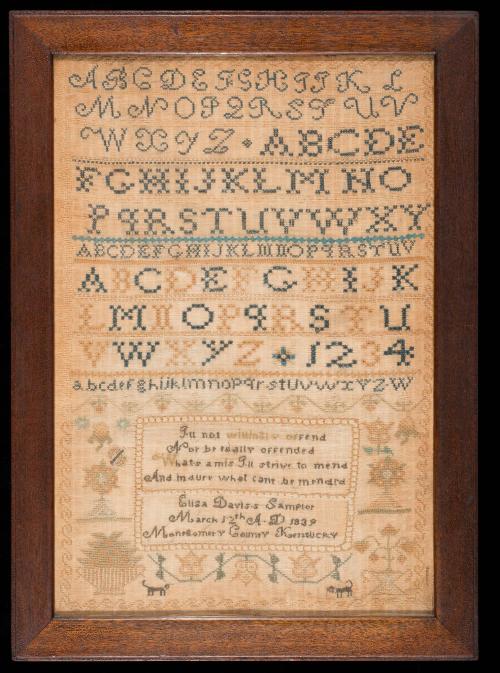 A B C D E F G H I J K L
M N O P Q R S T U V
W X Y Z A B C D E
F G H I J K L M N O
P q R S T U V W X Y
A B C D E F G H I J K L M N O P q R S T U V
A B C D E F G H I J K
L M N O P q R S T U
V W X Y Z 1 2 3 4
a b c d e f g h i j k l m n o p q r s t u v w x y z W
I'll not willfully offend
Nor be easily offended
Whats amis I'll strive to mend
And indure what cant be mendid
Eliza Daviss Sampler
March 12th A D 1839
Montgomery County Kentucky